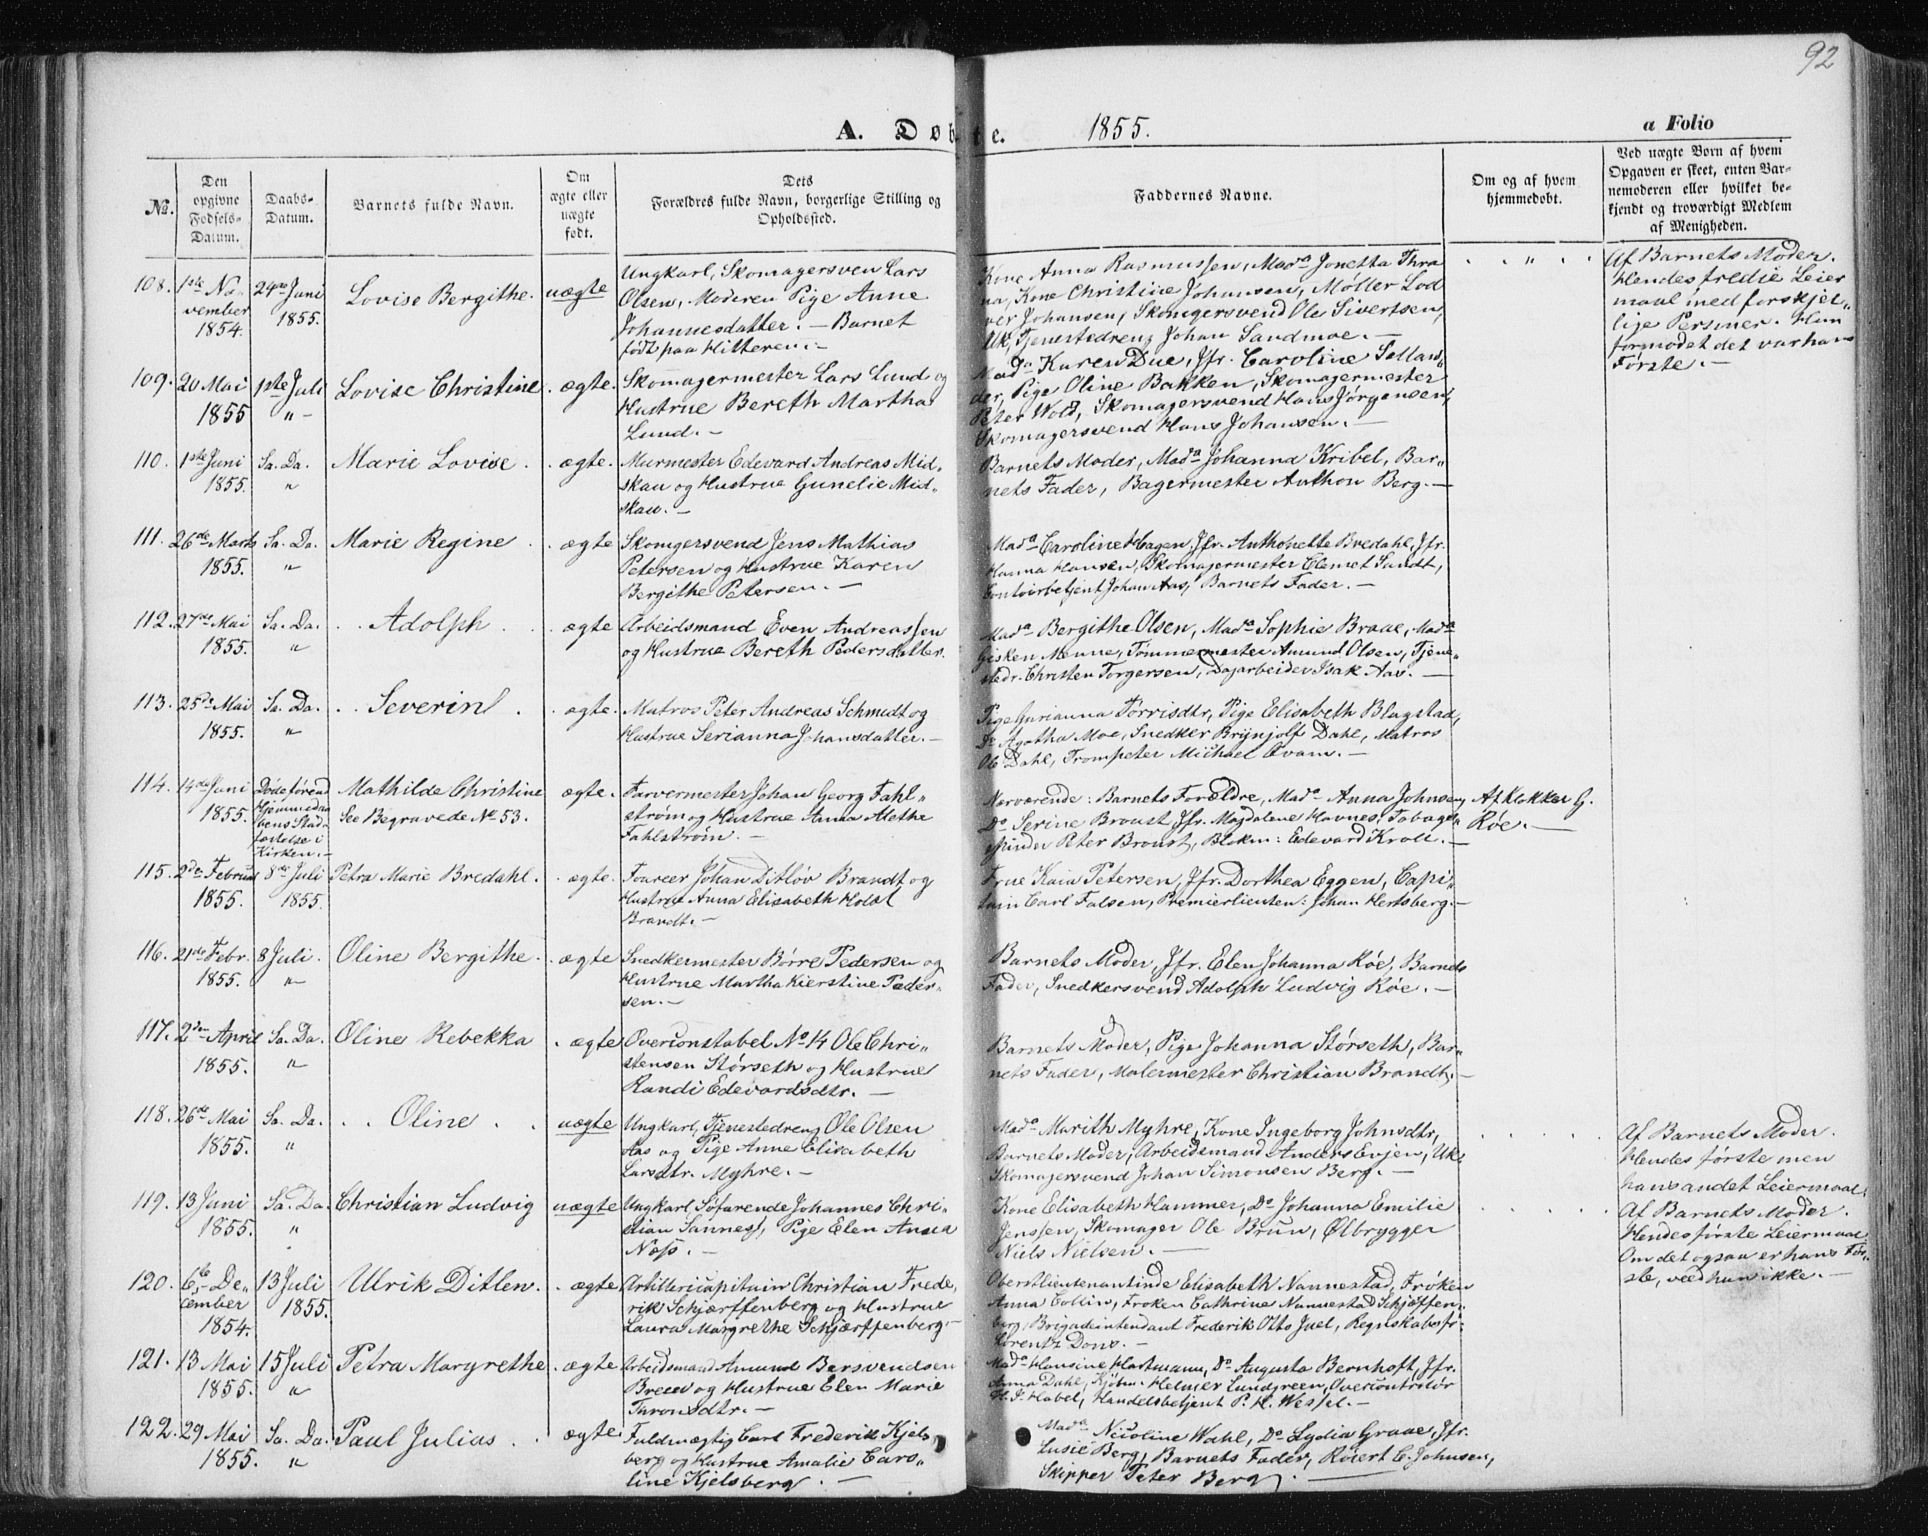 92
A. Døbte. 1855. a Folio
No. | Den opgivne Fødsels-Datum. | Daabs-Datum. | Barnets fulde Navn. | Om ægte eller uægte født. | Dets Forældres fulde Navn, borgerlige Stilling og Opholdssted. | Faddernes Navne. | Om og af hvem hjemmedøbt. | Ved uægte Børn af hvem Opgaven er skeet, enten Barnemoderen eller hvilket bekjendt og troværdigt Medlem af Menigheden.
108. 1ste November 1854. 24de Juni 1855. Lovise Bergithe. uægte
Ungkarl, Skomagersven Lars
Olsen, Moderen Pige Anne
Johannesdatter. — Barnet
født paa Hitteren. —
Kone Anna Rasmussen, Mada Jonetta Thra
na, Kone Christine Johansen, Møller Lod
ver Johansen, Skomagersvend Ole Sivertsen,
Uk, Tjenestedreng Johan Sandmoe. —
Af Barnets Moder.
Hendes tredie Leier
maal med forskjel„
lige Personer. Hun
formodet det var hans
Første. —
109. 20 Mai 1855 1ste Juli „ Lovise Christine. ægte.
Skomagermester Lars Lund og
Hustrue Bereth Martha
Lund. —
Mada Karen Due, Jfr. Caroline Sellan„
der, Pige Oline Bakken, Skomagermester
Peter Wold, Skomagersvend Hans Jørgensen,
Skomagersvend Hans Johansen. —
110. 1ste Juni 1855. Sa. Da. „ Marie Lovise. ægte.
Murmester Edevard Andreas Mid„
skau og Hustrue Gunelie Mid„
skau. —
Barnets Moder, Mada Johanna Kribel, Bar„
nets Fader, Bagermester Anthon Berg. —
111. 26de Marts 1855. Sa. Da. „ Marie Regine. ægte
Skomgersvend Jens Mathias
Petersen og Hustrue Karen
Bergithe Petersen. —
Mada Caroline Hagen, Jfr. Anthonette Bredahl, Jfr.
Hanna Hansen, Skomagermester Clemet Sandt,
Contoirbetjent Johan Aas, Barnets Fader. —
112. 27de Mai 1855. Sa. Da. „ Adolph. ægte
Arbeidsmand Even Andreassen
og Hustrue Bereth Pedersdatter.
Mada Bergithe Olsen, Mada Sophie Braae, Mada
Gisken Menne, Tømmermester Amund Olsen, Tjene„
stedr. Christen Torgersen, Dagarbeider Isak Aas. —
113. 25de Mai 1855. Sa. Da. „ Severin. ægte.
Matros Peter Andreas Schmidt og
Hustrue Serianna Johansdatter. —
Pige Gurianna Torrisdtr, Pige Elisabeth Blagstad,
Do Agatha Moe, Snedker Brynjolf Dahl, Matros
Ole Dahl, Trompeter Michael Qvam. —
114. 14de Juni 1855. Døde førend Hjemmedaabens Stadfæstelse i Kirken. — Mathilde Christine See Begravede No 53. ægte.
Farvermester Johan Georg Fahl„
strøm og Hustrue Anna Alethe
Fahlstrøm. —
Nærværende: Barnets Forældre, Mada Anna Johnsen,
Do Serine Broust, Jfr. Magdalene Havnes, Tobags„
spinder Peter Broust, Blokm: Edevard Kroll. —
Af Klokker G.
Røe. —
115. 2den Februar 1855. 8de Juli 1855. Petra Marie Bredahl. ægte.
Foureer Johan Ditløv Brandt og
Hustrue Anna Elisabeth Holst
Brandt. —
Frue Kaia Petersen, Jfr. Dorthea Eggen, Capi„
tain Carl Falsen, Premierlieuten: Johan Hertsberg. —
116. 21de Febr. 1855. 8 Juli. „ Oline Bergithe. ægte
Snedkermester Børre Pedersen og
Hustrue Martha Kierstine Peder„
sen. —
Barnets Moder, Jfr. Elen Johanna Røe, Barnets
Fader, Snedkersvend Adolph Ludvig Røe. —
117. 2den April 1855. Sa. Da. „ Oline Rebekka. ægte
Overconstabel No 14 Ole Chri„
stensen Størseth og Hustrue
Randi Edevardsdtr. —
Barnets Moder, Pige Johanna Størseth, Bar„
nets Fader, Malermester Christian Brandt. —
118. 26de Mai 1855. Sa. Da. „ Oline. uægte
Ungkarl, Tjenestedreng Ole Olsen
Aas og Pige Anne Elisabeth
Larsdtr. Myhre. —
Mada Marith Myhre, Kone Ingeborg Johnsdtr,
Barnets Moder, Arbeidsmand Anders Evjen, Uk.
Skomagersvend Johan Simonsen Berg. —
Af Barnets Moder.
Hendes første men
hans andet Leiermaal.
119. 13 Juni 1855. Sa. Da. „ Christian Ludvig. uægte
Ungkarl Søfarende Johannes Chri„
stian Sannes, Pige Elen Anna
Næss. —
Kone Elisabeth Hammer, Do Johanna Emilie
Jenssen, Skomager Ole Brun, Ølbrygger
Niels Nielsen. —
Af Barnets Moder.
Hendes første Leiermaal
Om det ogsaa er hans Før„
ste, veed hun ikke. —
120. 6te December 1854. 13 Juli 1855. Ulrik Ditlen. ægte
Artillericapitain Christian Frede„
rik Schjærffenberg og Hustrue
Laura Margrethe Schjærffenberg. —
Oberstlieutenantinde Elisabeth Nannestad, Frøken
Anna Collin, Frøken Cathrine Nannestad Schjæffen„
berg, Brigadeintendant Frederik Otto Juel, Regnskabsf:
Lorentz Dons. —
121. 13 Mai 1855. 15 Juli „ Petra Margrethe. ægte
Arbeidsmand Amund Bersvendsen
Breed og Hustrue Elen Marie
Taronsdtr. —
Mada Hansine Hartmann, Do Augusta Bernhoft, Jfr.
Anna Dahl, Kjøbm. Helmer Lundgreen, Overcontrolør
H. J. Habel, Handelsbetjent P. H. Wessel. —
122. 29 Mai 1855. Sa. Da. „ Paul Julius. ægte
Fuldmægtig Carl Frederik Kjels
berg og Hustrue Amalie Caro„
line Kjelsberg. —
Mada Nicoline Wahl, Do Lydia Graae, Jfr.
Lusie Berg, Barnets Fader, Røiert C. Johnsen,
Skipper Peter Berg. —